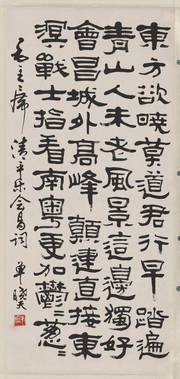 東方欲曉莫道君行早 踏遍
青山人未老風景這邊獨好
會昌城外高峰 顛連直接東
溟戰士指看南粵更加鬱〻葱〻
毛主席 清平乐会昌词 單曉天